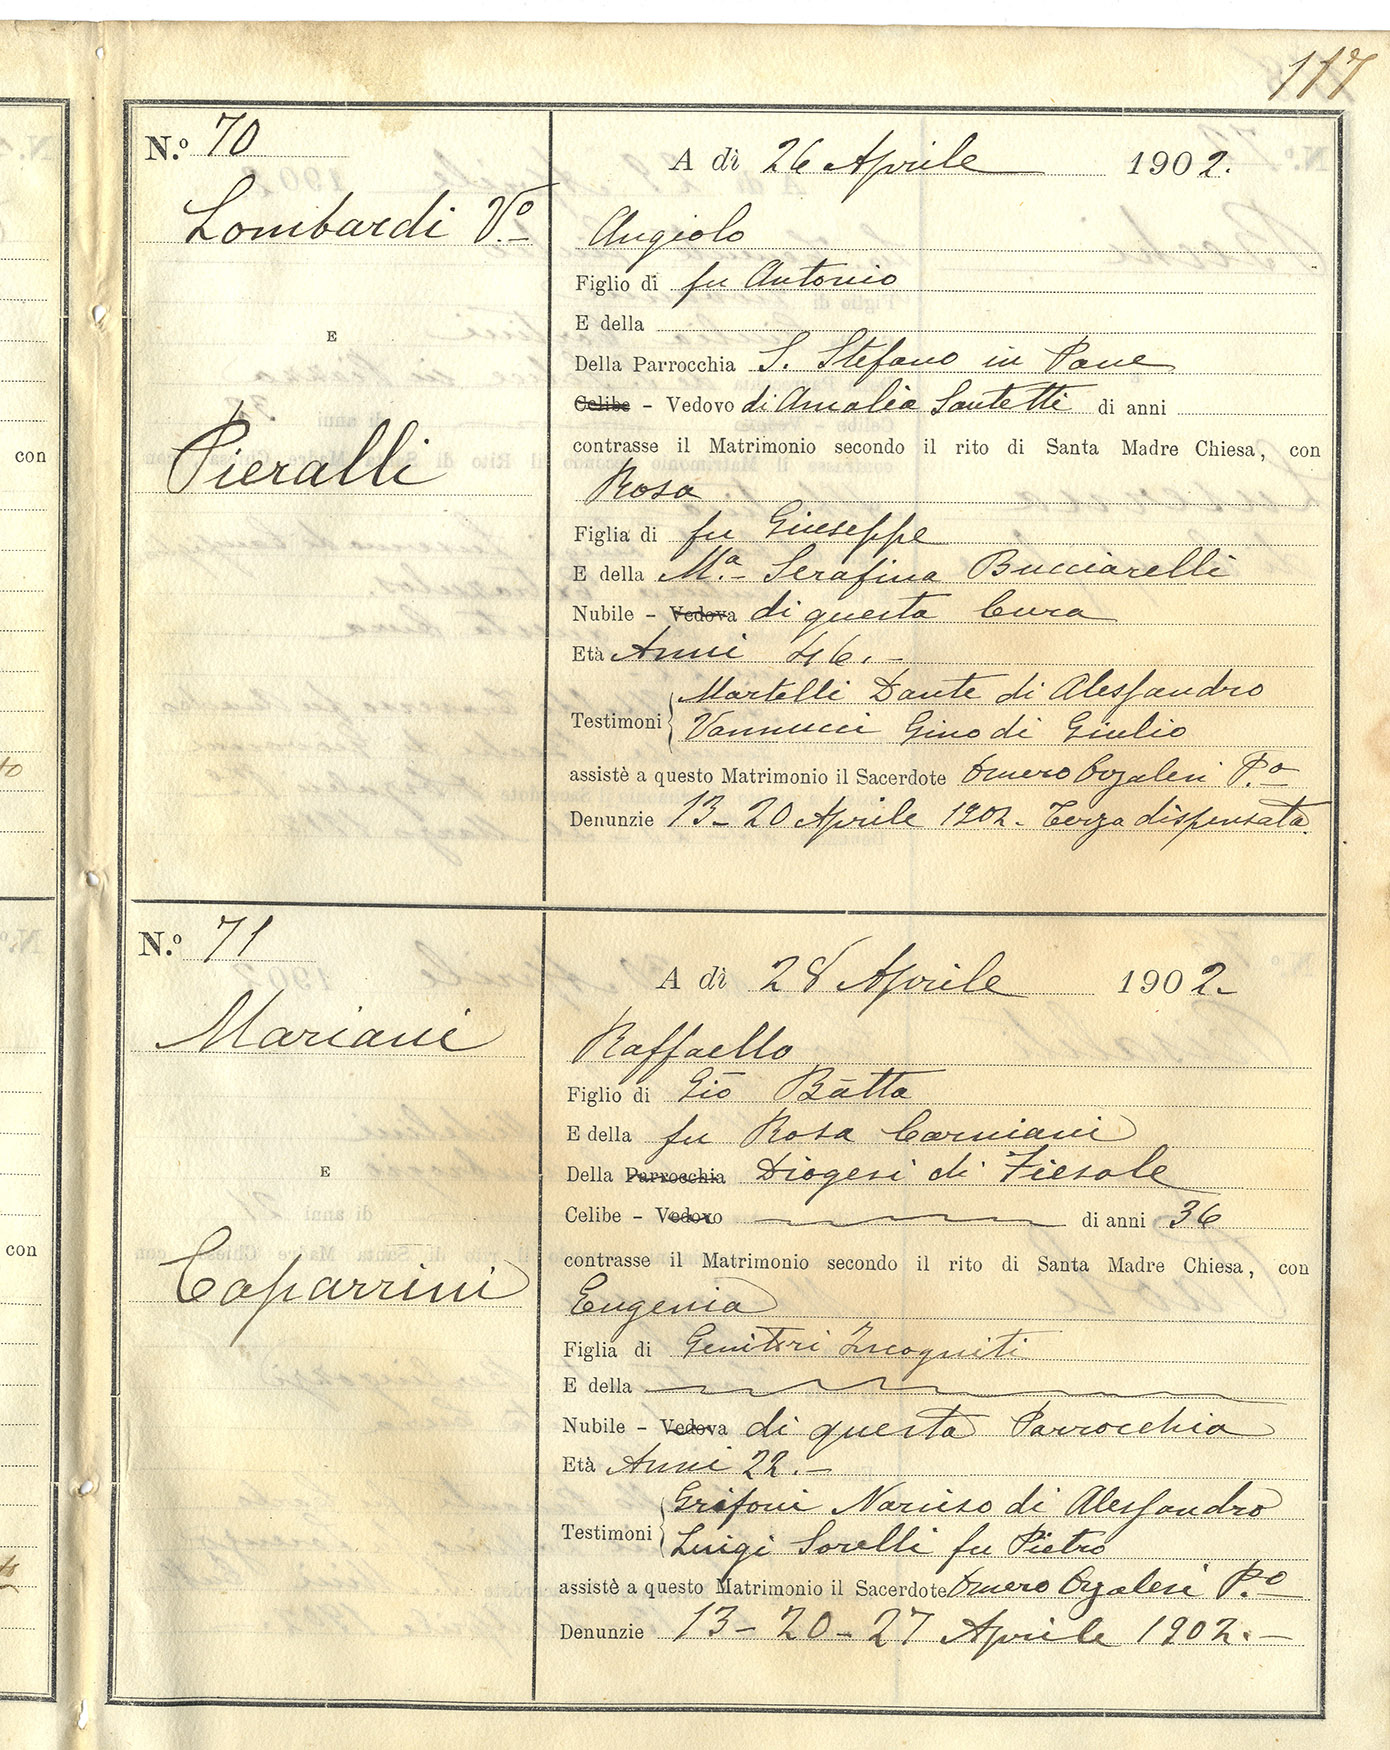 117
N.º 70
Lombardi Vº.
E
Pieralli
A dì 26 Aprile 1902.
Angiolo
Figlio di fu Antonio
E della
Della Parrocchia S. Stefano in Pane
Celibe - Vedovo di Amalia Santetti di anni
contrasse il Matrimonio secondo il rito di Santa Madre Chiesa, con
Rosa
Figlia di fu Giuseppe
E della Mª. Serafina Bucciarelli
Nubile - Vedova di questa Cura
Età Anni 46. -
Testimoni { Martelli Dante di Alessandro
Vannucci Gino di Giulio
assistè a questo Matrimonio il Sacerdote Omero Pº.
Denunzie 13 - 20 Aprile 1902. Terza dispensata
N.º 71
Mariani
E
Caparrini
A dì 28 Aprile 1902. -
Raffaello
Figlio di Giō Bātta
E della fu Rosa Carniani
Della Parrocchia Diogesi di Fiesole
Celibe - Vedovo di anni 36
contrasse il Matrimonio secondo il rito di Santa Madre Chiesa, con
Eugenia
Figlia di Genitori Incogniti
E della
Nubile - Vedova di questa Parrocchia
Età Anni 22. -
Testimoni { Grifoni Narciso di Alessandro
Luigi Sorelli fu Pietro
assistè a questo Matrimonio il Sacerdote Omero Pº.
Denunzie 13 - 20 - 27 Aprile 1902. -
con
con